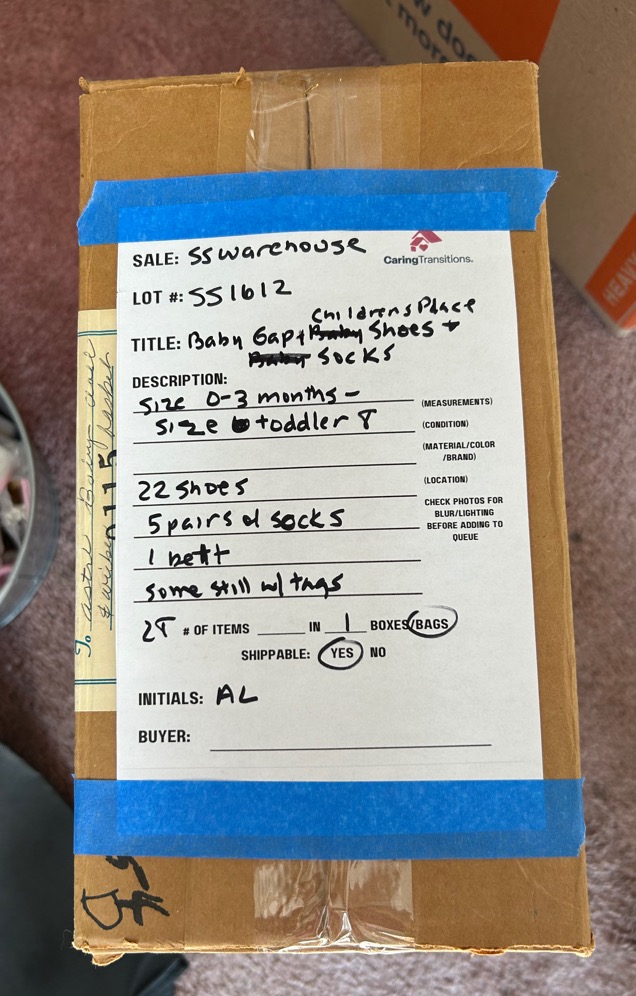 w do
more
HEAVY
SALE: SS warehouse
CaringTransitions.
LOT #: SS1612
Childrens Place
TITLE: Baby Gap + Baby Shoes +
Baby Socks
DESCRIPTION:
Size 0-3 months -
(MEASUREMENTS)
Size toddler 8
(CONDITION)
(MATERIAL/COLOR
/BRAND)
22 shoes
(LOCATION)
5 pairs of socks
CHECK PHOTOS FOR
BLUR/LIGHTING
BEFORE ADDING TO
QUEUE
1 belt
Some still w/ tags
28 # OF ITEMS ____ IN 1 BOXES/BAGS
SHIPPABLE: YES NO
INITIALS: AL
BUYER:
To Astri Baby doll